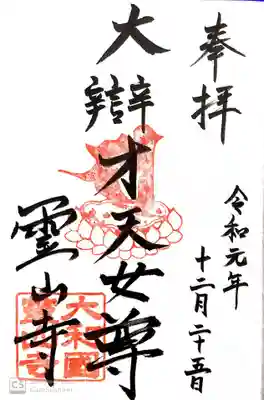 奉拝
令和元年
十二月二十五日
大辯才天女尊
靈山寺
大和國
CS